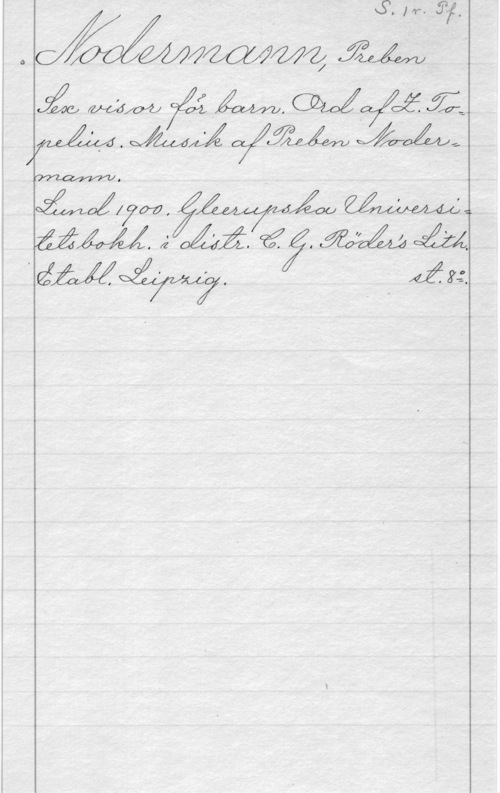 S. 1 r. Pf.
Nodermann, Preben
Sex visor för barn. Ord af Z. To=
pelius. Musik af Preben Noder=
mann.
Lund 1900. Gleerupska Universi=
tetsbokh. i distr. C. G. Röder's Lith.
Etabl. Leipzig. st. 8º.